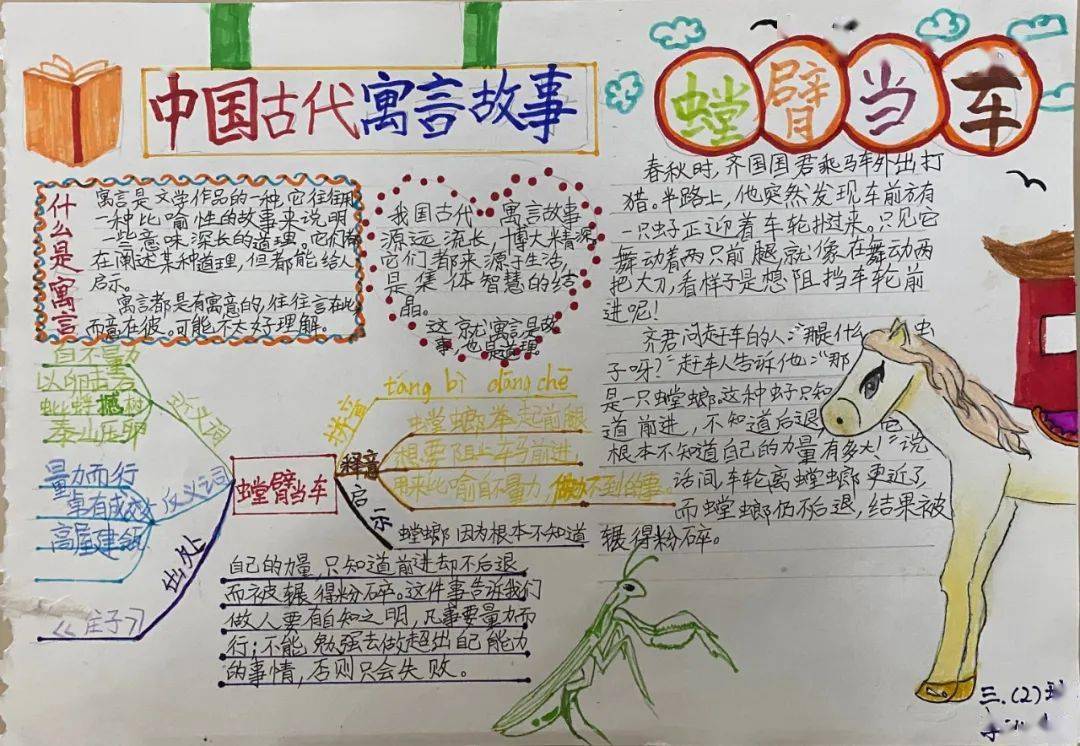 中国古代寓言故事
螳臂当车
什么是寓言
寓言是文学作品的一种,它往往用
一种比喻性的故事来说明
一些意味深长的道理。它们
在阐述某种道理,但都能给人
启示。
寓言都是有寓意的,往往言在此
而意在彼。可能不太好理解。
我国古代 寓言故事
源远流长,博大精深
它们都来源于生活,
是集体智慧的结
晶。
这就寓言是故
事,也是道理。
自不量力
以卵击石
蚍蜉撼树
泰山压卵
近义词
量力而行
卓有成效
高屋建瓴
反义词
出处
《庄子》
螳臂当车
拼音
táng bì dāng chē
释意
螳螂举起前腿
想要阻止车马前进,
用来比喻自不量力,做不到的事。
启示
螳螂因为根本不知道
自己的力量,只知道前进却不后退
而被辗得粉碎。这件事告诉我们
做人要有自知之明,凡事要量力而
行;不能勉强去做超出自己能力
的事情,否则只会失败。
春秋时,齐国国君乘马车外出打
猎。半路上,他突然发现车前方有
一只虫子正迎着车轮扑过来。只见它
舞动着两只前腿,就像在舞动两
把大刀,看样子是想阻挡车轮前
进呢!
齐君问赶车的人:“那是什么 虫
子呀?”赶车人告诉他:“那
是一只螳螂,这种虫子只知
道前进,不知道后退 他
根本不知道自己的力量有多大!”说
话间,车轮离螳螂更近了,
而螳螂仍不后退,结果被
辗得粉碎。
三.(2)